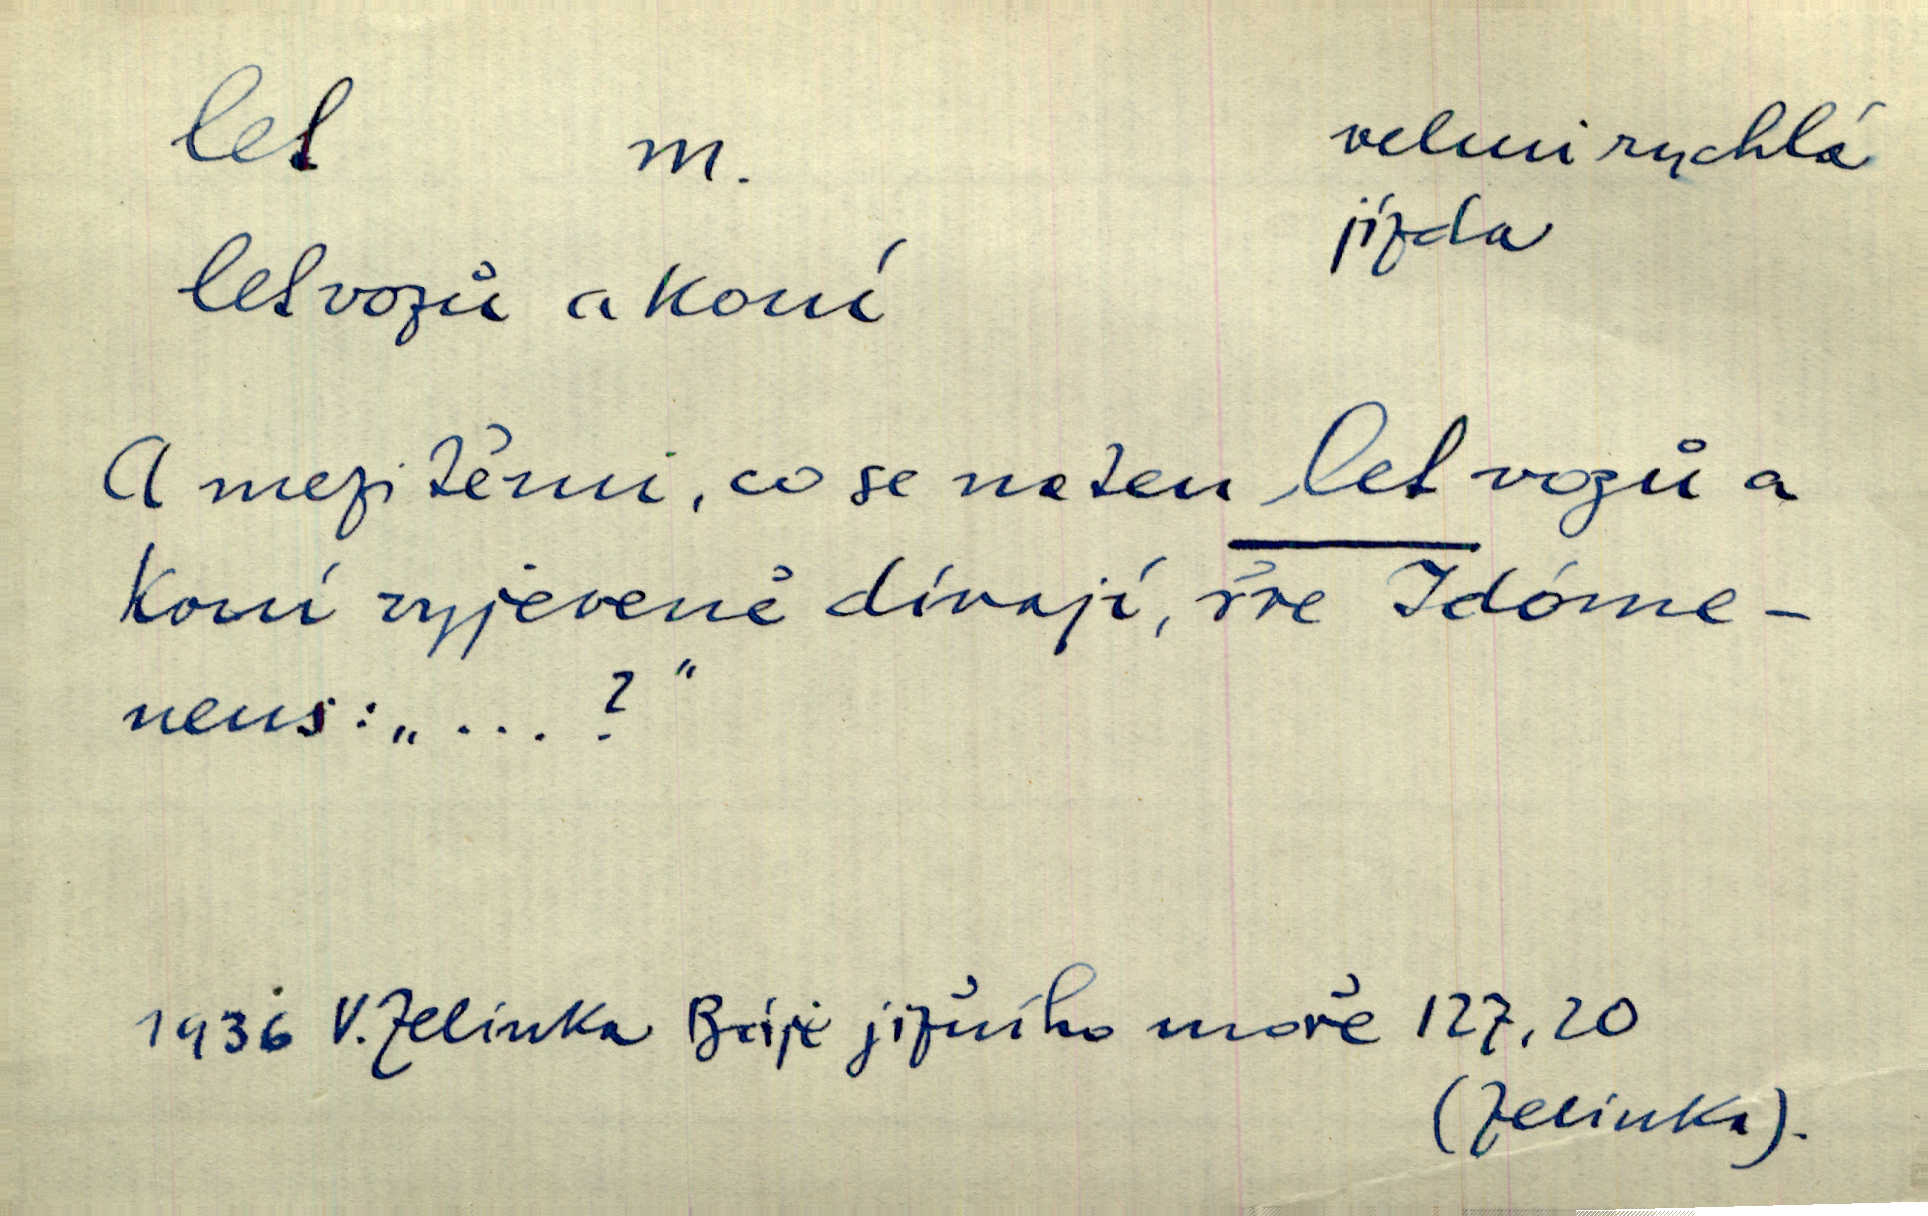 let m. velmi rychlá
jízda
let vozů a koní
A mezi těmi, co se na ten let vozů a
koní vyjeveně dívají, řve Idóme-
neus: „....?“
1936 V. Zelinka Báje jižního moře 127,20
(Zelinka).